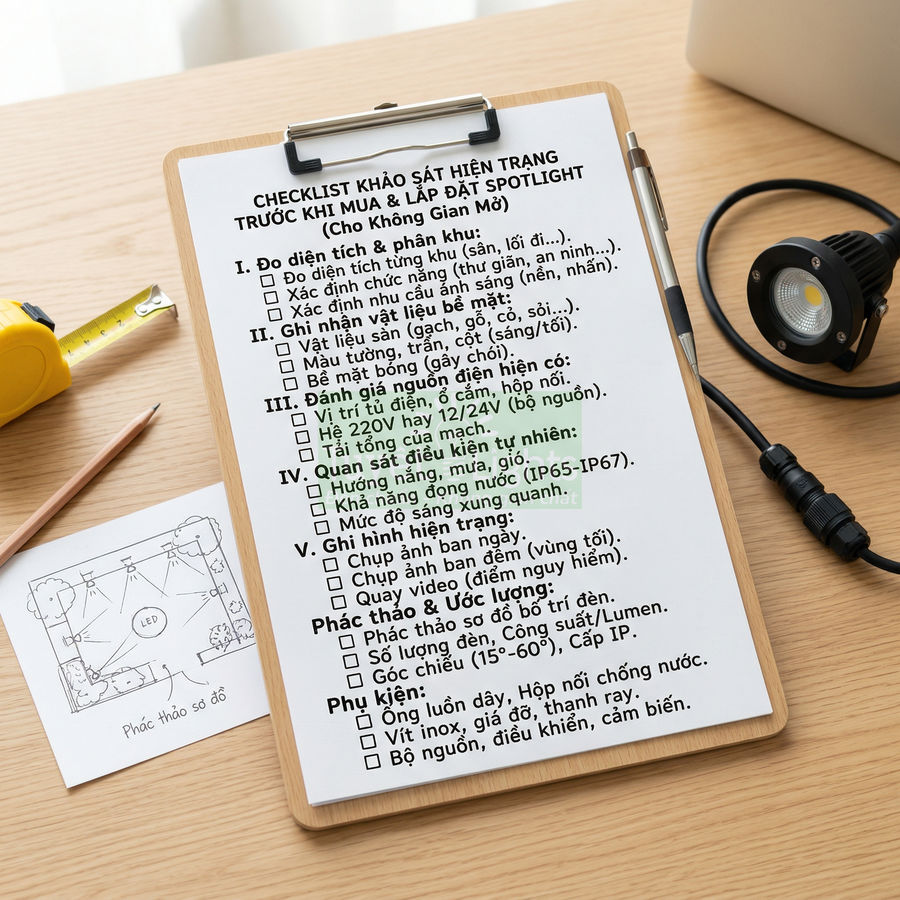 CHECKLIST KHẢO SÁT HIỆN TRẠNG
TRƯỚC KHI MUA & LẮP ĐẶT SPOTLIGHT
(Cho Không Gian Mở)
I. Đo diện tích & phân khu:
☐ Đo diện tích từng khu (sân, lối đi...).
☐ Xác định chức năng (thư giãn, an ninh...).
☐ Xác định nhu cầu ánh sáng (nền, nhấn).
II. Ghi nhận vật liệu bề mặt:
☐ Vật liệu sàn (gạch, gỗ, cỏ, sỏi...).
☐ Màu tường, trần, cột (sáng/tối).
☐ Bề mặt bóng (gây chói).
III. Đánh giá nguồn điện hiện có:
☐ Vị trí tủ điện, ổ cắm, hộp nối.
☐ Hệ 220V hay 12/24V (bộ nguồn).
☐ Tải tổng của mạch.
IV. Quan sát điều kiện tự nhiên:
☐ Hướng nắng, mưa, gió.
☐ Khả năng đọng nước (IP65-IP67).
☐ Mức độ sáng xung quanh.
V. Ghi hình hiện trạng:
☐ Chụp ảnh ban ngày.
☐ Chụp ảnh ban đêm (vùng tối).
☐ Quay video (điểm nguy hiểm).
Phác thảo & Ước lượng:
☐ Phác thảo sơ đồ bố trí đèn.
☐ Số lượng đèn, Công suất/Lumen.
☐ Góc chiếu (15°-60°), Cấp IP.
Phụ kiện:
☐ Ống luồn dây, Hộp nối chống nước.
☐ Vít inox, giá đỡ, thanh ray.
☐ Bộ nguồn, điều khiển, cảm biến.
LED
Phác thảo sơ đồ